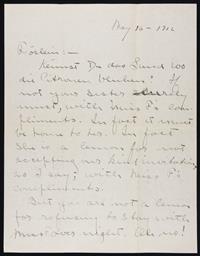 May 16 - 1912
Röslein:—
Kennst Du das Land wo
die Citronen blühen? If
not your sister surely
must, with Miss P's com-
pliments. In fact it must
be home to her. In fact
she is a lemon for not
accepting my kind invitation
as I say; with Miss P's
compliments.
But you are not a lemon
for refusing to stay with
last night. Oh no!